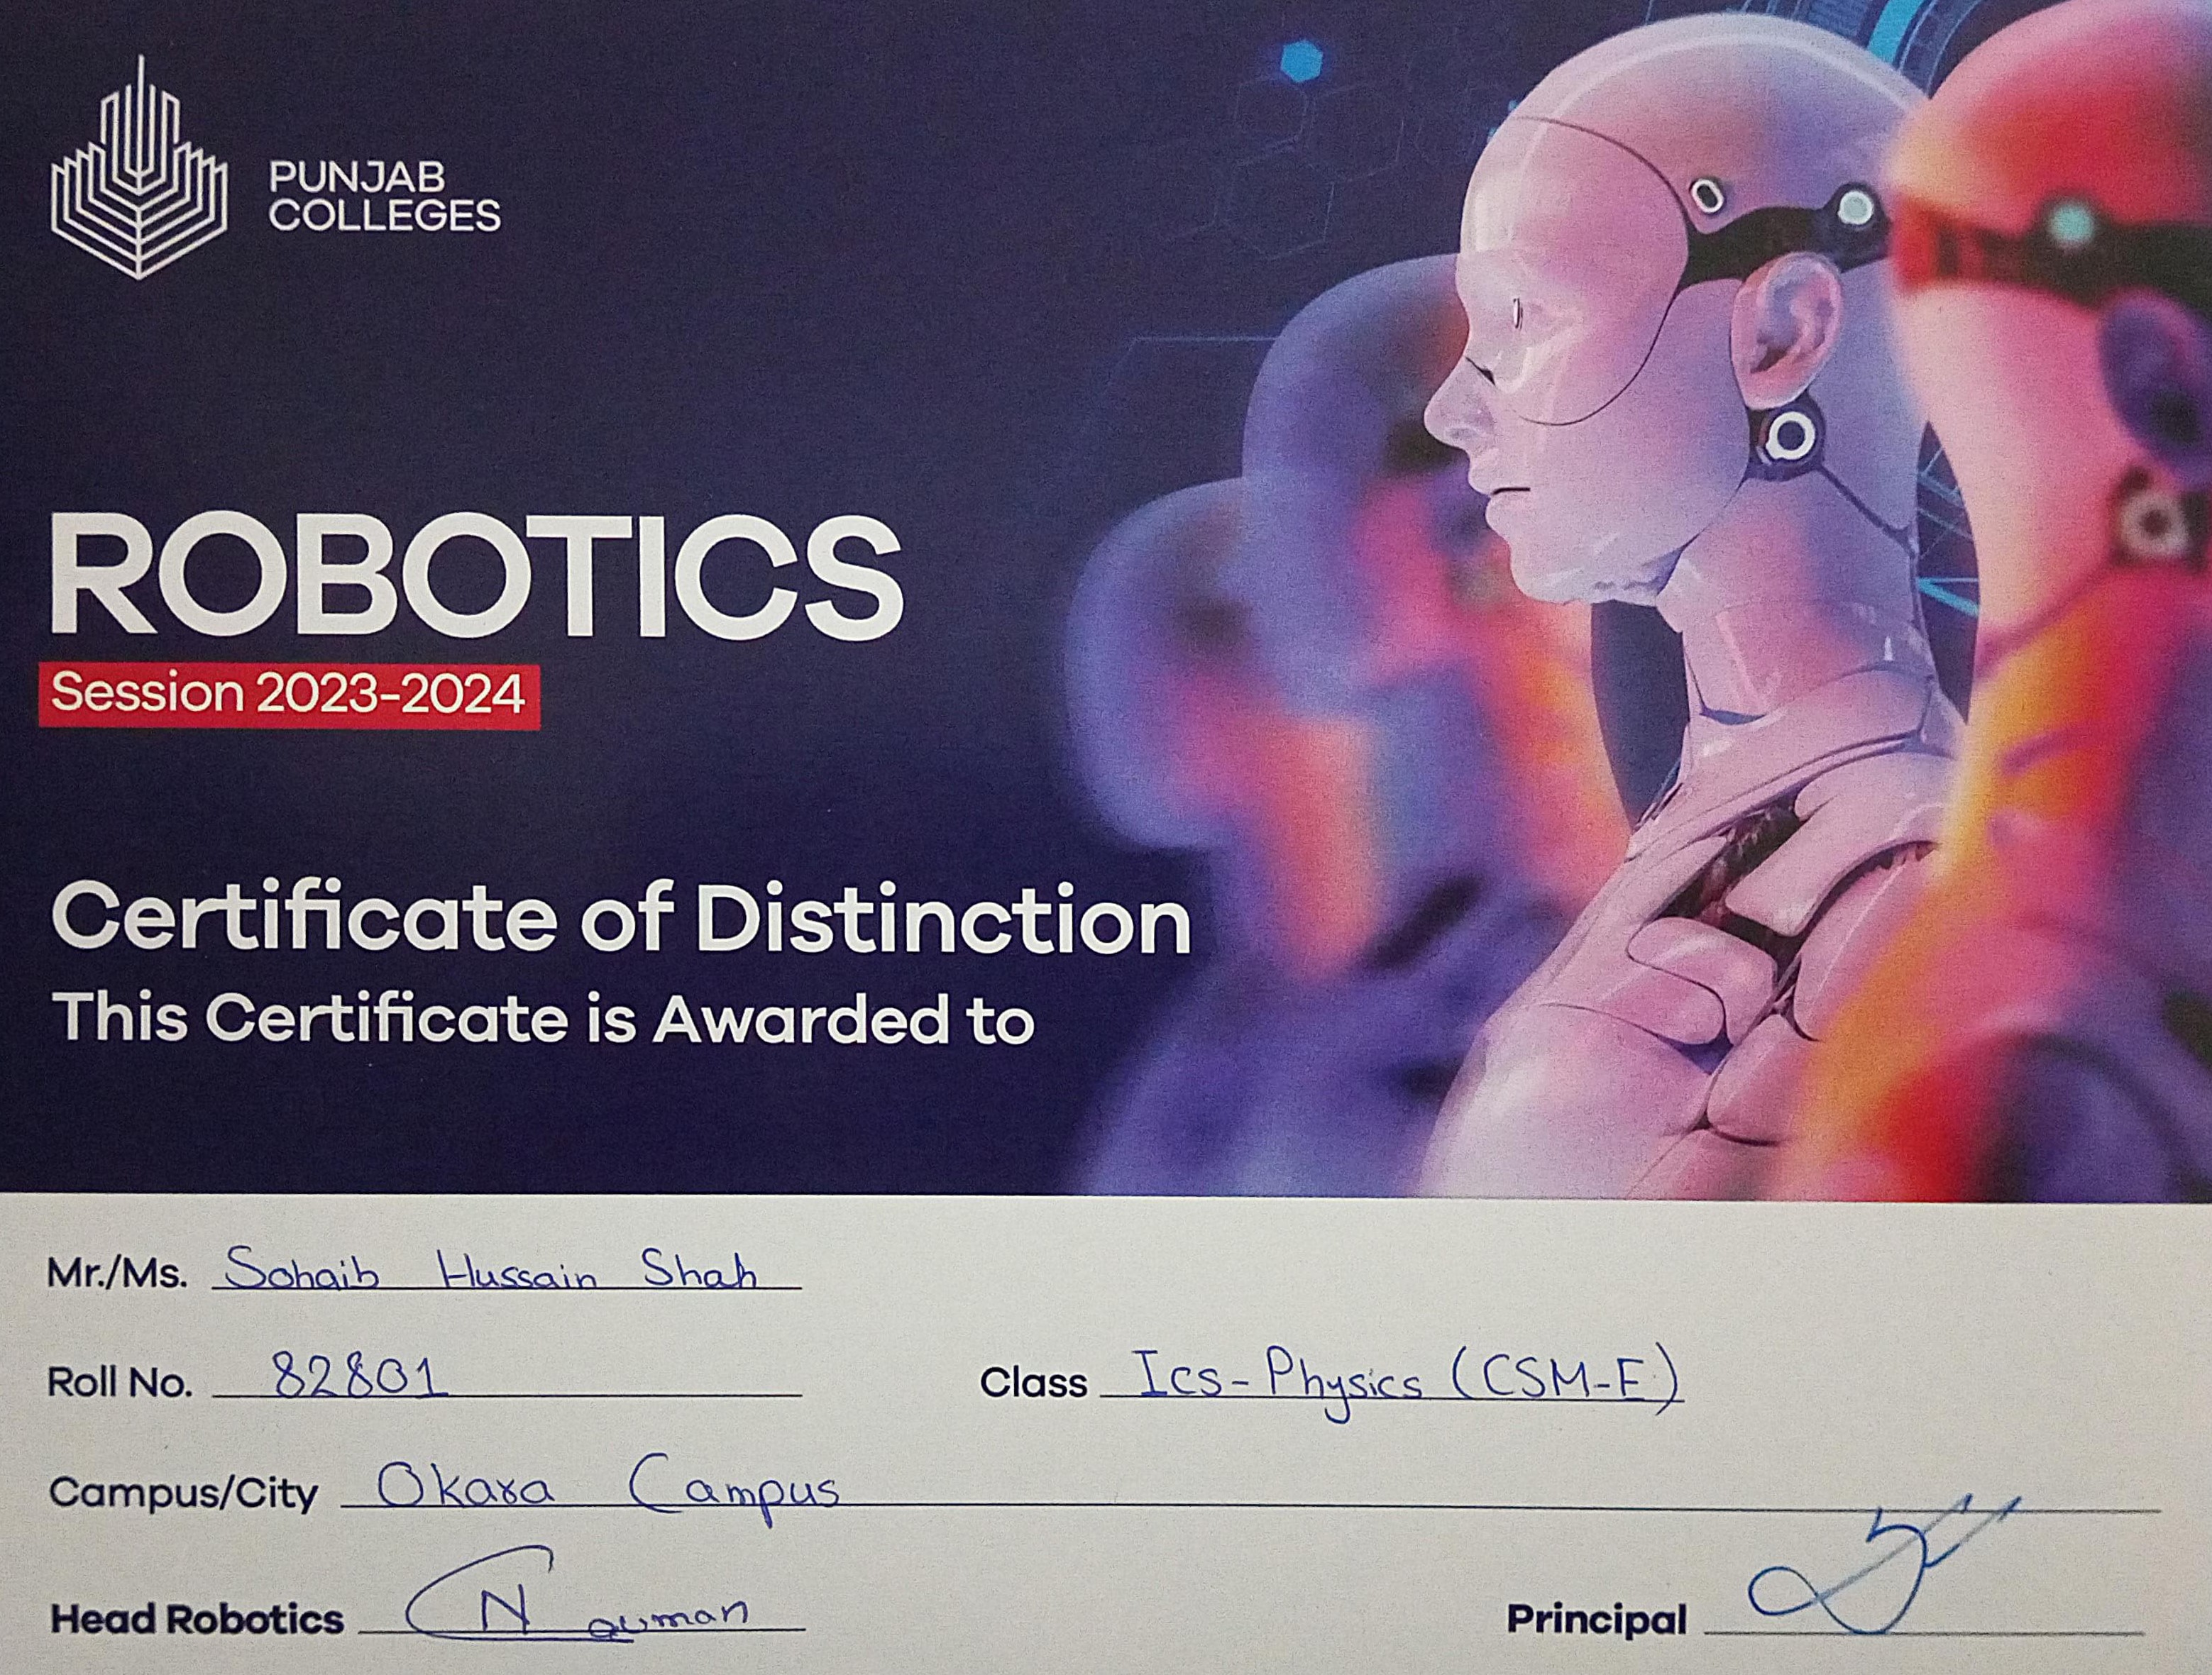 PUNJAB
COLLEGES
ROBOTICS
Session 2023-2024
Certificate of Distinction
This Certificate is Awarded to
Mr./Ms. Sohaib Hussain Shah
Roll No. 82801 Class Ics-Physics (CSM-E)
Campus/City Okara Campus
Head Robotics Nauman Principal